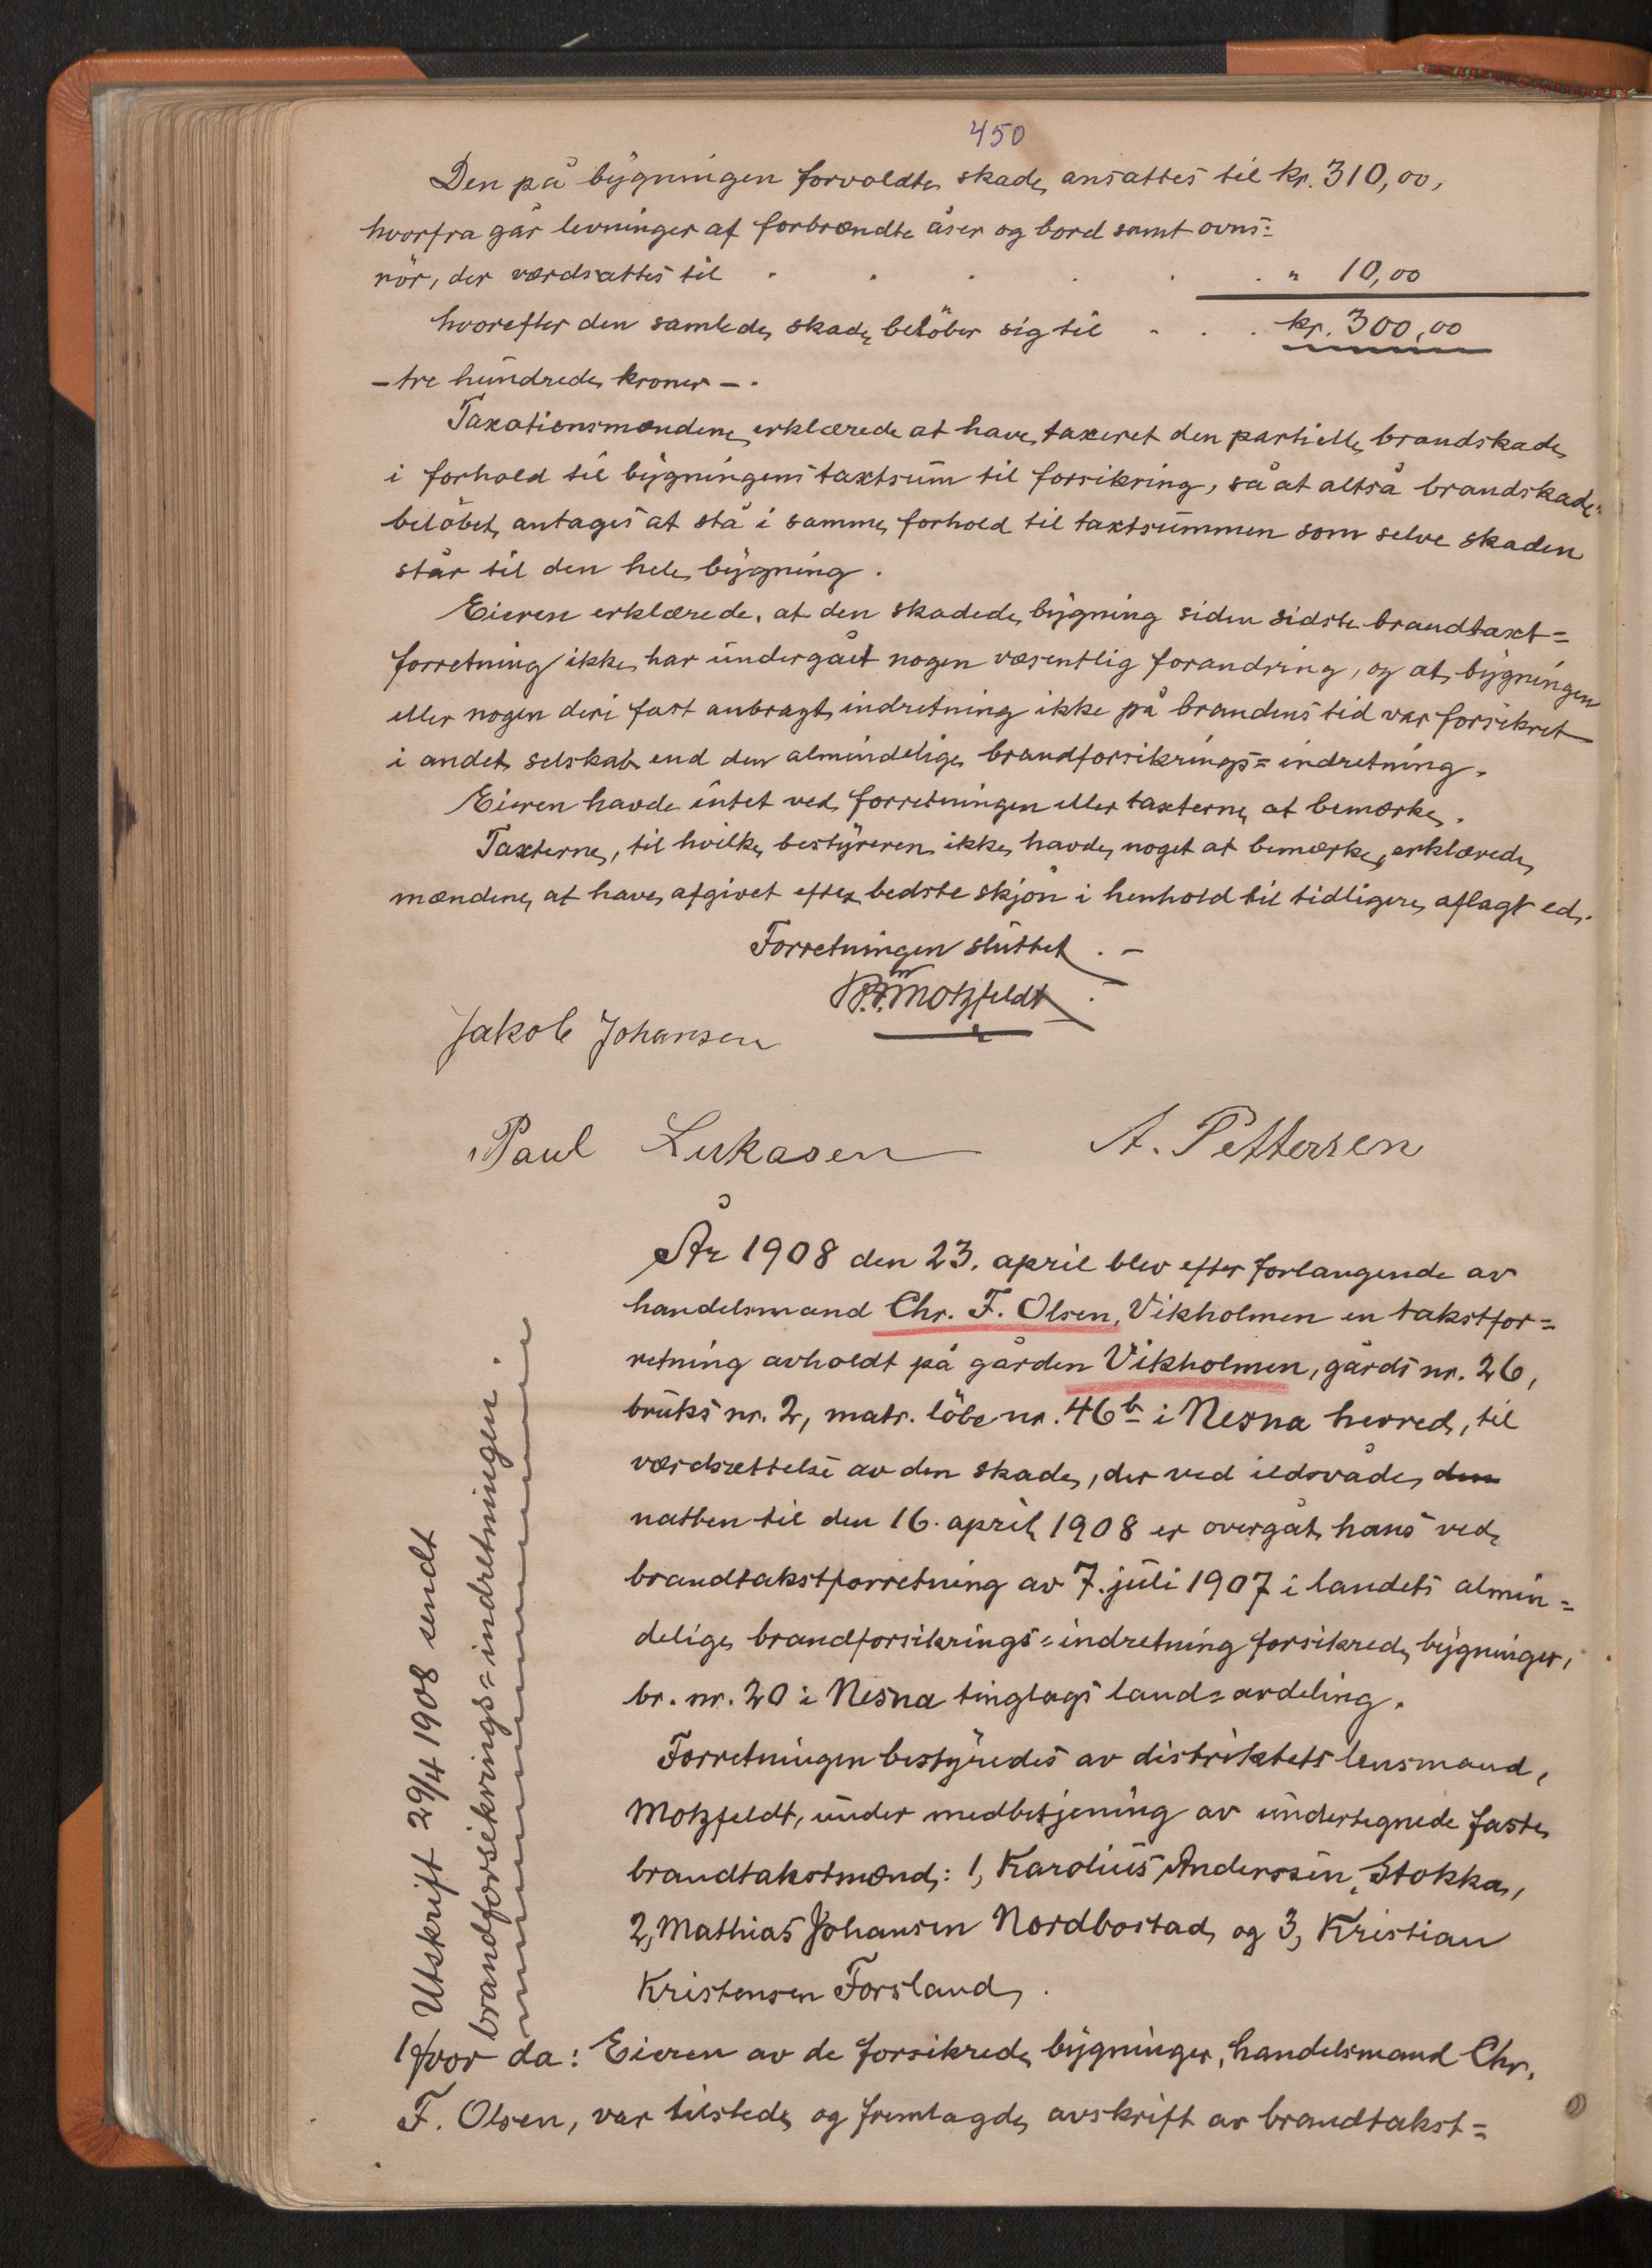 450
Den på bygningen forvoldte skade ansattes til kr. 310,00,
hvorfra går levninger af forbrændte åser og bord samt ovns=
rör, der værdsattes til . . . . . . " 10,00
hvorefter den samlede skade belöber sig til . . . kr. 300,00
- tre hundrede kroner - .
Taxationsmændene erklærede at have taxeret den partielle brandskade
i forhold til bygningens taxtsum til forsikring, så at altså brandskade=
belöbet antages at stå i samme forhold til taxtsummen som selve skaden
står til den hele bygning.
Eieren erklærede, at den skadede bygning siden sidste brandtaxt=
forretning ikke har undergået nogen væsentlig forandring, og at bygningen
eller nogen deri fast anbragt indretning ikke på brandens tid var forsikret
i andet selskab end den almindelige brandforsikrings=indretning.
Eieren havde intet ved forretningen eller taxterne at bemærke.
Taxterne, til hvilke bestyreren ikke havde noget at bemærke, erklærede
mændene at have afgivet efter bedste skjön i henhold til tidligere aflagt ed.
Forretningen sluttet . -
Motzfeldt
Jakob Johansen
Paul Lukasen A. Pettersen
År 1908 den 23. april blev efter forlangende av
handelsmand Chr. F. Olsen, Vikholmen en takstfor=
retning avholdt på gården Vikholmen, gårds nr. 26,
bruks nr. 2, matr. löbe nr. 46b i Nesna herred, til
værdsættelse av den skade, der ved ildsvåde den
natten til den 16. april 1908 er overgåt hans ved
brandtakstforretning av 7. juli 1907 i landets almin=
delige brandforsikrings=indretning forsikrede bygninger,
br. nr. 20 i Nesna tinglags land=avdeling.
Forretningen bestyredes av distriktets lensmand,
Motzfeldt, under medbetjening av undertegnede faste
brandtakstmænd: 1, Karolius Anderssen, Stokka,
2, Mathias Johansen Nordbostad, og 3, Kristian
Kristensen Forsland.
Utskrift 29/4 1908 sendt
brandforsikrings=indretningen.
Hvor da: Eieren av de forsikrede bygninger, handelsmand Chr.
F. Olsen, var tilstede og fremlagde avskrift av brandtakst=